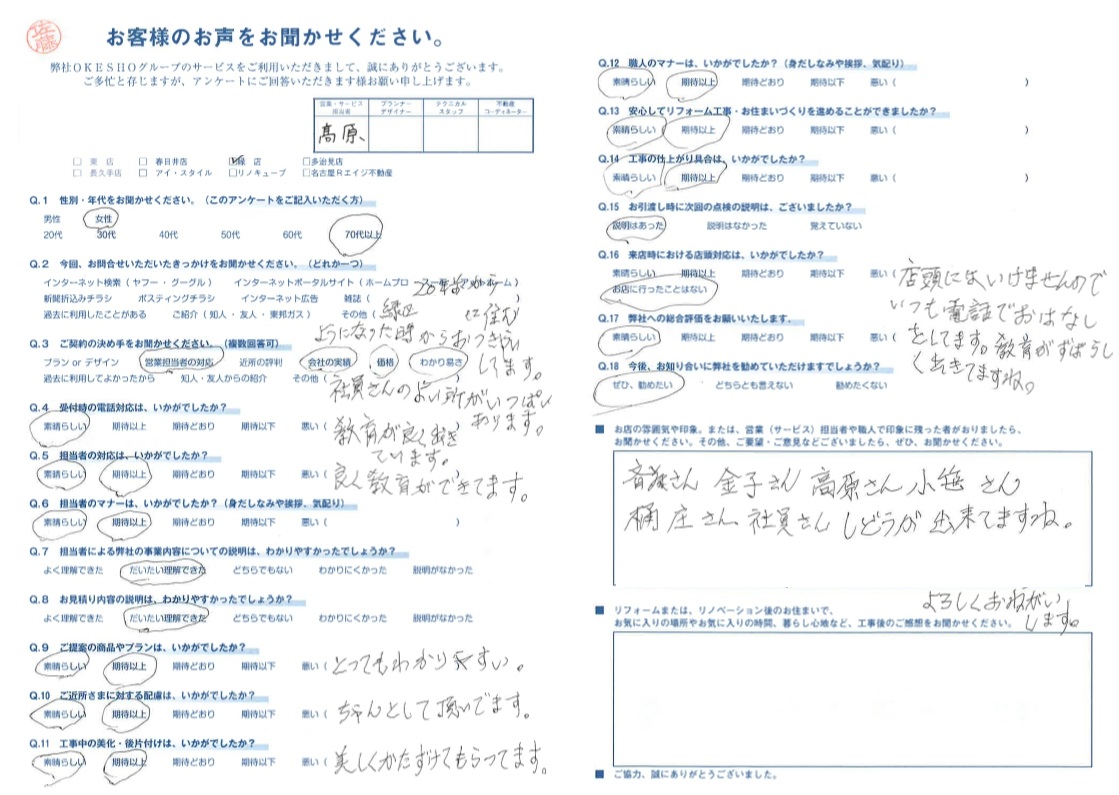 佐藤
お客様のお声をお聞かせください。
弊社OKESHOグループのサービスをご利用いただきまして、誠にありがとうございます。
ご多忙と存じますが、アンケートにご回答いただきます様お願い申し上げます。
営業・サービス担当者 プランナーデザイナー テクニカルスタッフ 不動産コーディネーター
高原
□ 東 店 □ 春日井店 緑 店 □多治見店
□ 長久手店 □ アイ・スタイル □リノキューブ □名古屋Rエイジ不動産
Q.1 性別・年代をお聞かせください。(このアンケートをご記入いただく方)
男性 女性
20代 30代 40代 50代 60代 70代以上
Q.2 今回、お問合せいただいたきっかけをお聞かせください。(どれか一つ)
インターネット検索(ヤフー・グーグル) インターネットポータルサイト(ホームプロ
20年前から
新聞折込みチラシ ポスティングチラシ インターネット広告 雑誌( )
過去に利用したことがある ご紹介(知人・友人・東邦ガス) その他(緑区に住む
ようになった時からおつきあい
してます。
Q.3 ご契約の決め手をお聞かせください。(複数回答可)
プラン or デザイン 営業担当者の対応 近所の評判 会社の実績 価格 わかり易さ
過去に利用してよかったから 知人・友人からの紹介 その他(社員さんのよい所がいっぱい
あります。
Q.4 受付時の電話対応は、いかがでしたか?
素晴らしい 期待以上 期待どおり 期待以下 悪い(教育が良くおき
ています。
Q.5 担当者の対応は、いかがでしたか?
素晴らしい 期待以上 期待どおり 期待以下 悪い(良く教育ができてます。
Q.6 担当者のマナーは、いかがでしたか?(身だしなみや挨拶、気配り)
素晴らしい 期待以上 期待どおり 期待以下 悪い( )
Q.7 担当者による弊社の事業内容についての説明は、わかりやすかったでしょうか?
よく理解できた だいたい理解できた どちらでもない わかりにくかった 説明がなかった
Q.8 お見積り内容の説明は、わかりやすかったでしょうか?
よく理解できた だいたい理解できた どちらでもない わかりにくかった 説明がなかった
Q.9 ご提案の商品やプランは、いかがでしたか?
素晴らしい 期待以上 期待どおり 期待以下 悪い(とってもわかりやすい。
Q.10 ご近所さまに対する配慮は、いかがでしたか?
素晴らしい 期待以上 期待どおり 期待以下 悪い(ちゃんとして頂いてます。
Q.11 工事中の美化・後片付けは、いかがでしたか?
素晴らしい 期待以上 期待どおり 期待以下 悪い(美しくかたずけてもらってます。
Q.12 職人のマナーは、いかがでしたか?(身だしなみや挨拶、気配り)
素晴らしい 期待以上 期待どおり 期待以下 悪い( )
Q.13 安心してリフォーム工事・お住まいづくりを進めることができましたか?
素晴らしい 期待以上 期待どおり 期待以下 悪い( )
Q.14 工事の仕上がり具合は、いかがでしたか?
素晴らしい 期待以上 期待どおり 期待以下 悪い( )
Q.15 お引渡し時に次回の点検の説明は、ございましたか?
説明はあった 説明はなかった 覚えていない
Q.16 来店時における店頭対応は、いかがでしたか?
素晴らしい 期待以上 期待どおり 期待以下 悪い(
お店に行ったことはない
店頭にはいけませんので
いつも電話でおはなし
をしてます。教育がすばらし
く出きてますね。
Q.17 弊社への総合評価をお願いいたします。
素晴らしい 期待以上 期待どおり 期待以下 悪い(
Q.18 今後、お知り合いに弊社を勧めていただけますでしょうか?
ぜひ、勧めたい どちらとも言えない 勧めたくない
■ お店の雰囲気や印象。または、営業(サービス)担当者や職人で印象に残った者がおりましたら、
お聞かせください。その他、ご要望・ご意見などございましたら、ぜひ、お聞かせください。
さん 金子さん 高原さん 小笹さん
桶庄さん 社員さん しどうが出来てますね。
よろしくおねがい
します。
■ リフォームまたは、リノベーション後のお住まいで、
お気に入りの場所やお気に入りの時間、暮らし心地など、工事後のご感想をお聞かせください。
■ ご協力、誠にありがとうございました。